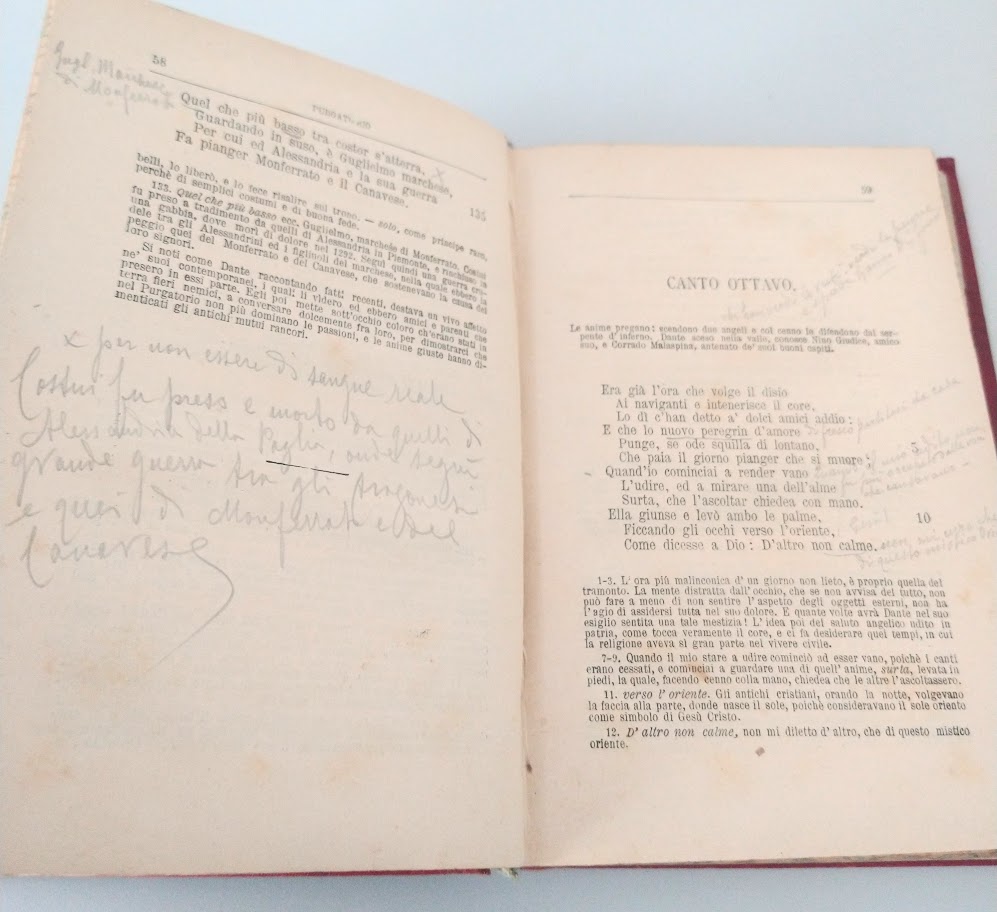 58
PURGATORIO
Gugl. Marchese
di Monferrato
Quel che più basso tra costor s'atterra, x
Guardando in suso, è Guglielmo marchese,
Per cui ed Alessandria e la sua guerra 135
Fa pianger Monferrato e il Canavese.
belli, lo liberò, e lo fece risalire sul trono. — solo, come principe raro,
perchè di semplici costumi e di buona fede.
133. Quel che più basso ecc. Guglielmo, marchese di Monferrato. Costui
fu preso a tradimento da quelli di Alessandria in Piemonte, e rinchiuso in
una gabbia, dove morì di dolore nel 1292. Seguì quindi una guerra cru-
dele tra gli Alessandrini ed i figliuoli del marchese, nella quale ebbero la
peggio quei del Monferrato e del Canavese, che sostenevano la causa dei
loro signori.
Si noti come Dante, raccontando fatti recenti, destava un vivo affetto
ne' suoi contemporanei, i quali li videro ed ebbero amici e parenti che
presero in essi parte. Egli poi mette sott'occhio coloro ch'erano stati in
terra fieri nemici, a conversare dolcemente fra loro, per dimostrarci che
nel Purgatorio non più dominano le passioni, e le anime giuste hanno di-
menticati gli antichi mutui rancori.
x per non essere di sangue reale
Costui fu preso e morto da quelli di
Alessandria della Paglia, onde seguì
grande guerra tra gli
e quei di Monferrato e del
Canavese
59
CANTO OTTAVO.
Le anime pregano: scendono due angeli e col cenno la difendono dal ser-
pente d'inferno. Dante sceso nella valle, conosce Nino Giudice, amico
suo, e Corrado Malaspina, antenato de' suoi buoni ospiti.
Era già l'ora che volge il disio
Ai naviganti e intenerisce il core,
Lo dì c'han detto a' dolci amici addio:
E che lo nuovo peregrin d'amore di fresco partitosi da casa
Punge, se ode squilla di lontano, 5
Che paia il giorno pianger che si muore:
Quand'io cominciai a render vano
L'udire, ed a mirare una dell'alme
Surta, che l'ascoltar chiedea con mano.
Ella giunse e levò ambo le palme, 10
Ficcando gli occhi verso l'oriente,
Come dicesse a Dio: D'altro non calme.
1-3. L'ora più malinconica d'un giorno non lieto, è proprio quella del
tramonto. La mente distratta dall'occhio, che se non avvisa del tutto, non
può fare a meno di non sentire l'aspetto degli oggetti esterni, non ha
l'agio di assidersi tutta nel suo dolore. E quante volte avrà Dante nel suo
esiglio sentita una tale mestizia! L'idea poi del saluto angelico udito in
patria, come tocca veramente il core, e ci fa desiderare quei tempi, in cui
la religione aveva sì gran parte nel vivere civile.
7-9. Quando il mio stare a udire cominciò ad esser vano, poichè i canti
erano cessati, e cominciai a guardare una di quell'anime, surta, levata in
piedi, la quale, facendo cenno colla mano, chiedea che le altre l'ascoltassero.
11. verso l'oriente. Gli antichi cristiani, orando la notte, volgevano
la faccia alla parte, donde nasce il sole, poichè consideravano il sole oriente
come simbolo di Gesù Cristo.
12. D'altro non calme, non mi diletto d'altro, che di questo mistico
oriente.